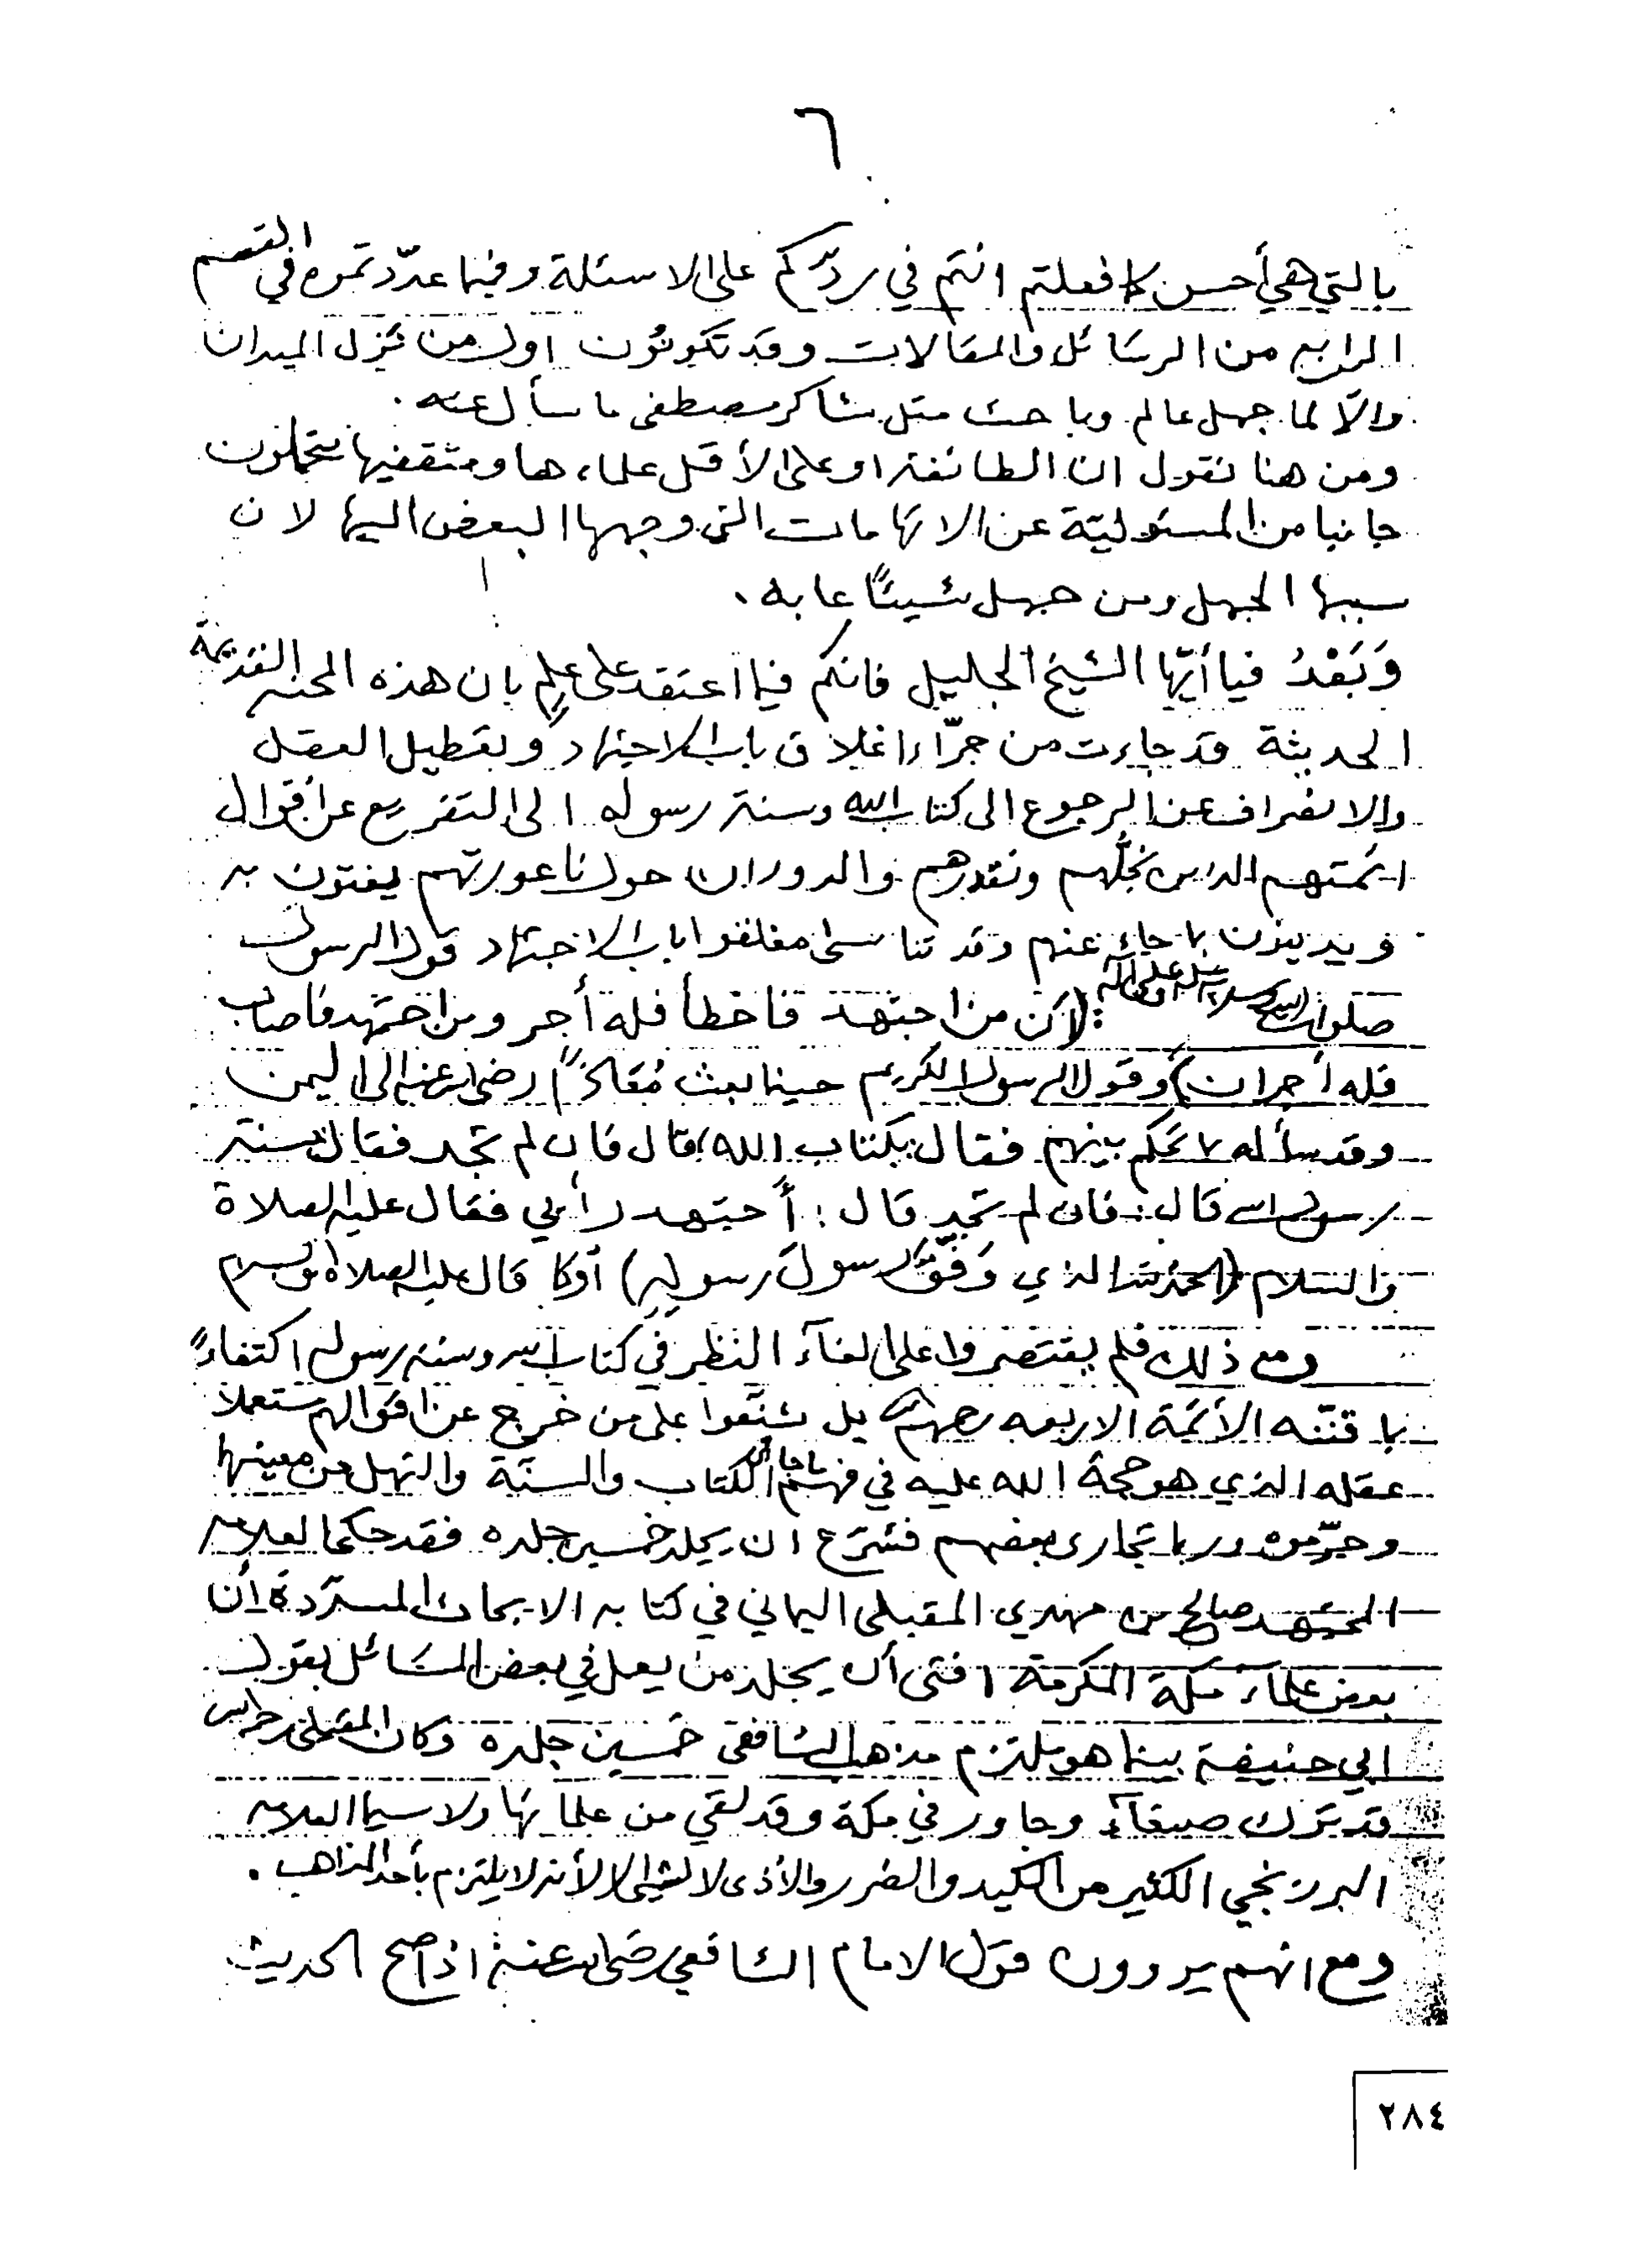 ٦
بالتي هي أحسن كما فعلتم انتم في ردّكم على الاسئلة وفيما عدّدتموه في القسم
الرابع من الرسائل والمقالات وقد تكونون اول من نزل الميدان
والاّ لما جهل عالم وباحث مثل شاكر مصطفى ما سأل عنه .
ومن هنا نقول ان الطائفة او على الأقل علماءها ومثقفيها يتحملون
جانبا من المسئوليّة عن الاتهامات التي وجهها البعض اليها لان
سببها الجهل ومن جهل شيئاً عابه .
وَبَعْدُ فيا أيّها الشيخ الجليل فانكم فيما اعتقد على علم بان هذه المحنه القديمة
الحديثة قد جاءت من جرّاء اغلاق باب الاجتهاد وتعطيل العقل
والانصراف عن الرجوع الى كتاب الله وسنة رسوله الى التفريع عن أقوال
ائمتهم الذين نجلّهم ونقدرهم والدوران حول ناعورتهم يفتون به
ويدينون بما جاء عنهم وقد تناسى مغلقوا باب الاجتهاد قول الرسول
صلوات الله وسلامه عليه وعلى آله : (أن من اجتهد فاخطأ فله أجر ومن اجتهد فأصاب
فله أجران) وقول الرسول الكريم حينما بعث مُعَاذاً رضي الله عنه الى اليمن
وقد سأله بم تحكم بينهم فقال بكتاب الله، قال فان لم تجد فقال بسنة
رسول الله قال : فان لم تجد قال : أجتهد رأيي فقال عليه الصلاة
والسلام (الحمد لله الذي وَفَّقَ رسولَ رسولِهِ) أوكما قال عليه الصلاة والسلام
ومع ذلك فلم يقتصروا على الغآء النظر في كتاب الله وسنة رسوله اكتفاءً
بما قننّه الأئمة الاربعه رحمهم الله بل شنّعوا على من خرج عن اقوالهم مستعملا
عقله الذي هو حجة الله عليه في فهم ما جاء في الكتاب والسنّة والنهل من معينها
وحرّموه وربما تجارى بعضهم فشرّع ان يجلد خمسين جلده فقد حكى العلامه
المجتهد صالح بن مهدي المقبلي اليماني في كتابه الابحاث المسدّدة أن
بعض علماء مكة المكرمة افتى أن يجلد من يعمل في بعض المسَائل بقول
ابي حنيفة بينما هو ملتزم مذهب الشافعي خمسين جلده وكان المقبلي رحمه الله
قد ترك صنعآء وجاور في مكة وقد لقي من علمائها ولا سيما العلامه
البرزنجي الكثير من الكيد والضرر والأذى لا لشيئ إلا لأنه لا يلتزم بأحد المذاهب .
ومع انهم يروون قول الامام الشافعي رضي الله عنه اذا صح الحديث
٢٨٤